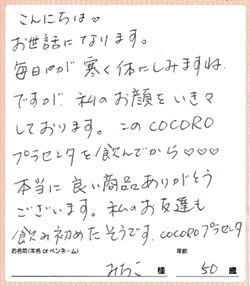 こんにちは♡
お世話になります。
毎日が寒く体にしみますね
ですが、私のお顔をいきいき
しております。このCOCORO
プラセンタを飲んでから♡♡♡
本当に良い商品ありがとう
ございます。私のお友達も
飲み初めたそうです。COCOROプラセンタ
お名前(本名 or ペンネーム) 年齢
みちこ 様 50 歳